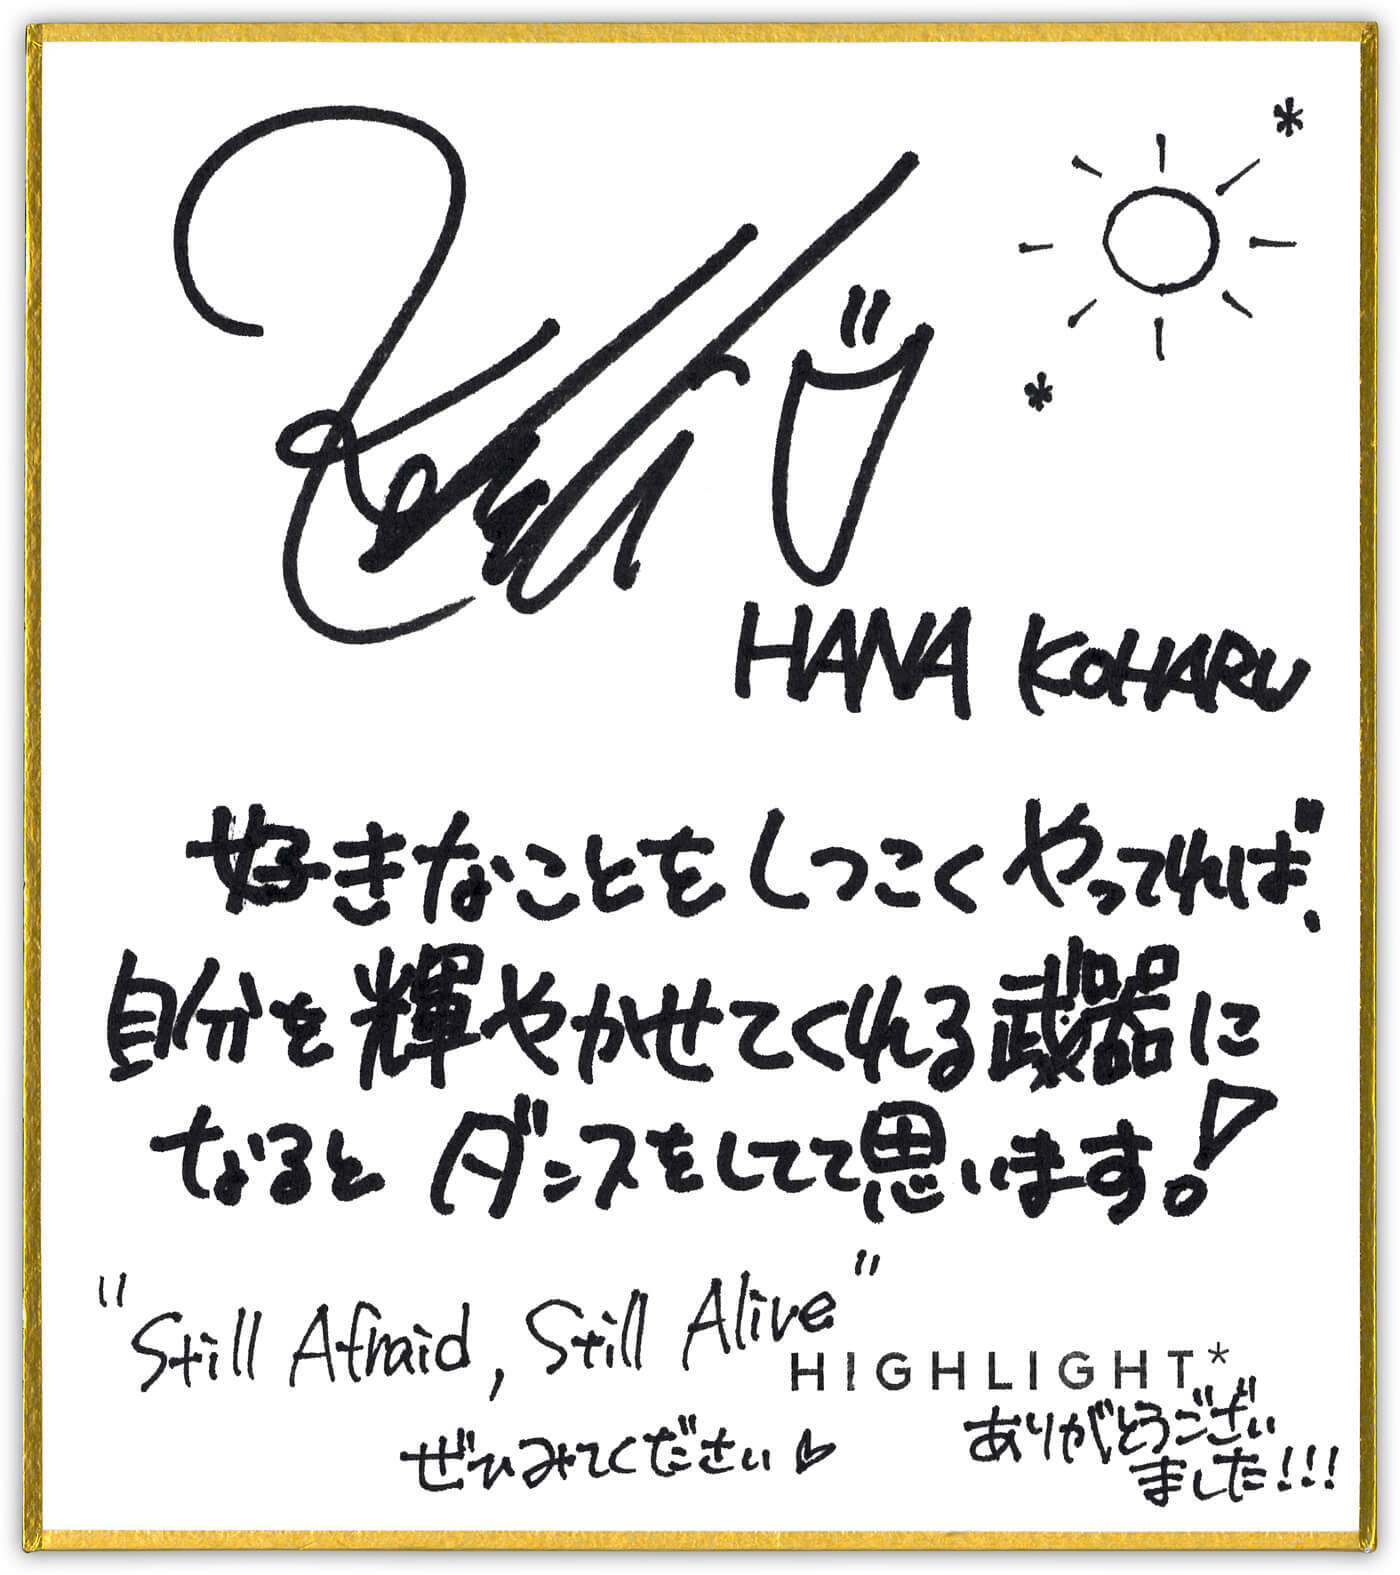 HANA KOHARU
好きなことをしつこくやってれば、
自分を輝やかせてくれる武器に
なると ダンスをしてて思います!
"Still Afraid, Still Alive"
HIGHLIGHT*
ぜひみてください
ありがとうござい
ました!!!